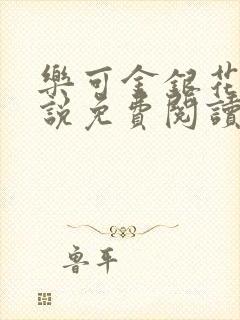 樂可金銀花
說免費閱讀
魯平